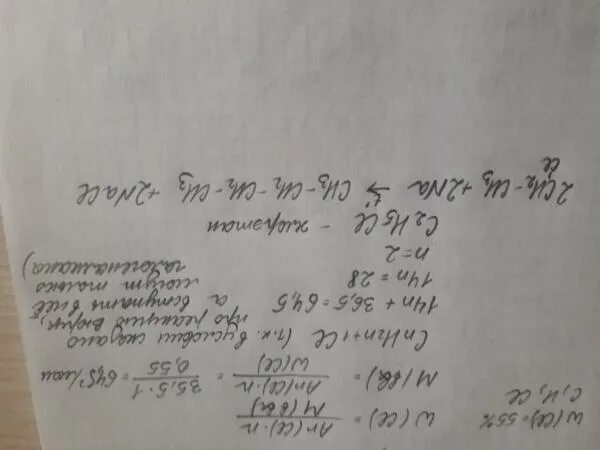 W(Cl) = 55%
C, H, Cl
W(Cl) = Ar(Cl)·n / M(вва)
M(вва) = Ar(Cl)·n / W(Cl) = 35,5·1 / 0,55 = 64,5 г/моль
CnH2n+1Cl (т.к. в условии сказано
про реакцию Вюрца,
а
вступать в неё
могут только
галогеналкана)
14n + 36,5 = 64,5
14n = 28
n = 2
C2H5Cl - хлорэтан
2CH2-CH3 + 2Na → CH3-CH2-CH2-CH3 + 2NaCl
Cl